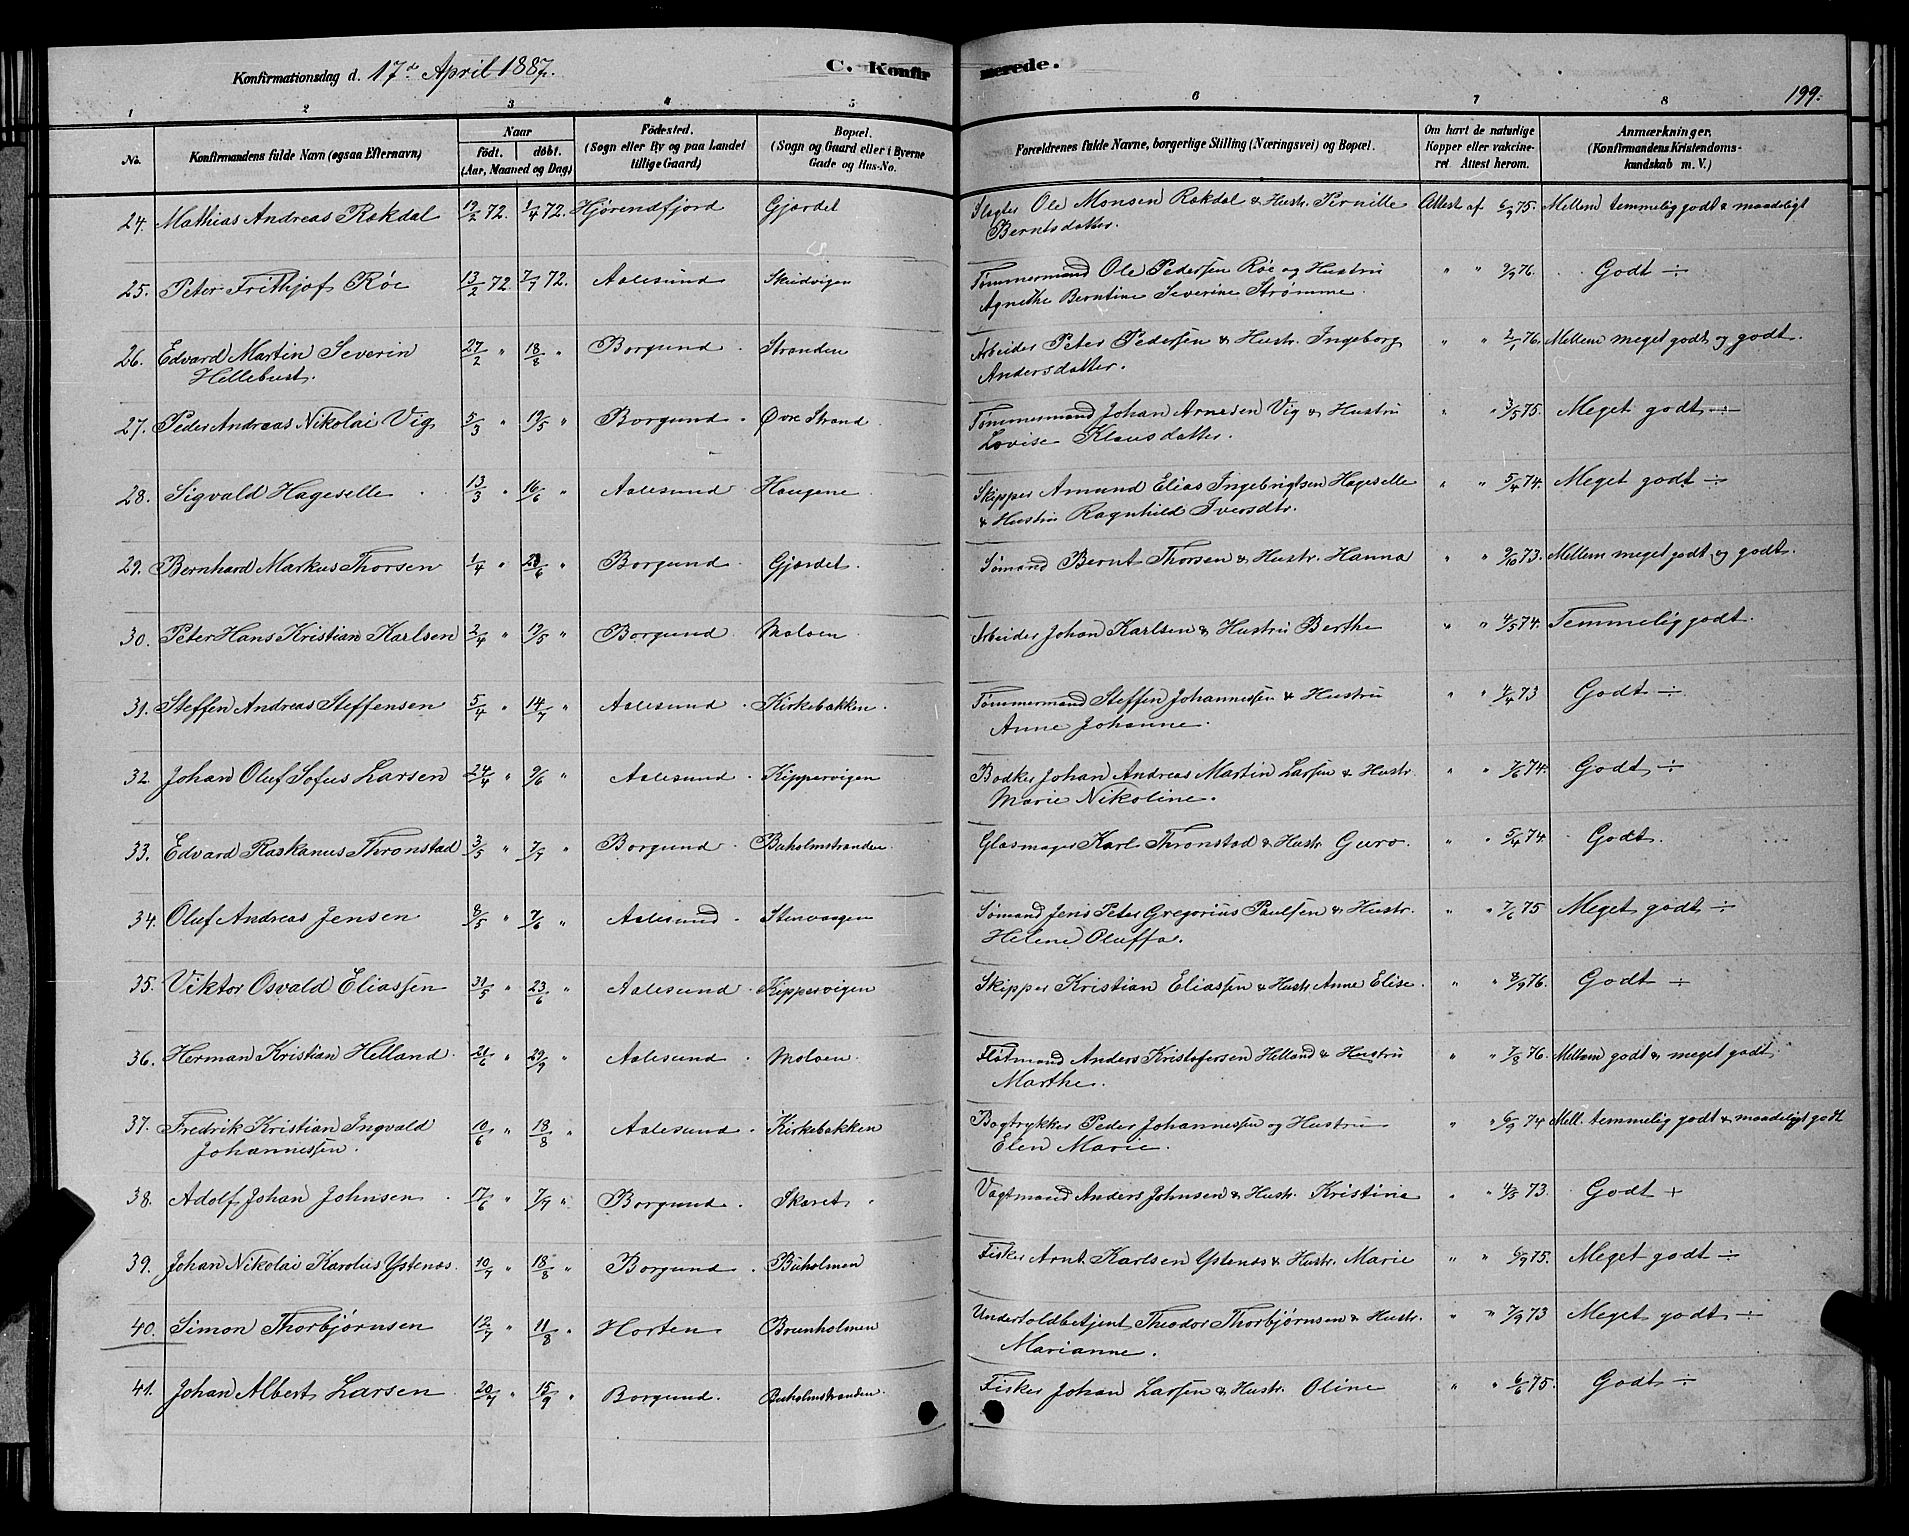 Konfirmationsdag d. 17de April 1887. C. Konfirmerede. 199.
1 2 3 4 5 6 7 8
No. Konfirmandens fulde Navn (ogsaa Efternavn) Naar født. døbt. (Aar, Maaned og Dag) Fødested. (Sogn eller By og paa Landet tillige Gaard) Bopæl. (Sogn og Gaard eller i Byerne Gade og Hus-No. Forældrenes fulde Navne, borgerlige Stilling (Næringsvei) og Bopæl. Om havt de naturlige Kopper eller vakcineret. Attest herom. Anmærkninger, (Konfirmandens Kristendomskundskab m. V.)
24. Mathias Andreas Rakdal 19/2 72. 1/4 72. Hjørendfjord Gjerdet Slagter Ole Monsen Rakdal & Hustr. Pernille Attest af 6/9 75. Mellem temmelig godt & maadeligt
Berntsdatter.
25. Peter Frithjof Røe 13/2 72. 7/7 72. Aalesund Skudvigen Tømmermand Ole Pedersen Røe og Hustru " " 9/9 76. Godt ÷
Agnethe Berntine Severine Strømme.
26. Edvard Martin Severin 27/2 " 18/8 " Borgund Stranden Arbeider Peter Pedersen & Hustr. Ingeborg " " 2/1 76. Mellem meget godt og godt.
Hellebust. Andersdatter.
27. Peder Andreas Nikolai Vig 5/3 " 19/5 " Borgund Øvre Strand Tømmermand Johan Arnesen Vig & Hustru " " 3/5 75. Meget godt ÷
Lovise Klausdatter.
28. Sigvald Hageselle 13/3 " 16/6 " Aalesund Haugene Skipper Amund Elias Ingebrigtsen Hageselle " " 5/4 74. Meget godt ÷
& Hustru Ragnhild Iversdtr.
29. Bernhard Markus Thorsen 1/4 " 23/6 " Borgund Gjerdet. Sømand Bernt Thorsen & Hustr. Hanna " " 9/10 73. Mellem meget godt og godt.
30. Peter Hans Kristian Karlsen 2/4 " 19/5 " Borgund Moloen. Arbeider Johan Karlsen & Hustru Berthe " " 4/5 74. Temmelig godt.
31. Steffen Andreas Steffensen 5/4 " 14/7 " Aalesund Kirkebakken. Tømmermand Steffen Johannessen & Hustru " " 4/4 73 Godt ÷
Anne Johanne.
32. Johan Oluf Sofus Larsen 24/4 " 9/6 " Aalesund Kippervigen Bødker Johan Andreas Martin Larsen & Hustr. " " 7/6 74. Godt ÷
Marie Nikoline.
33. Edvard Raskanus Thronstad 3/5 " 7/7 " Borgund Buholmstranden Glasmager Karl Thronstad & Hustr. Guro. " " 5/4 74. Godt.
34. Oluf Andreas Jensen 8/5 " 7/6 " Aalesund Stenvaagen Sømand Jens Peter Gregorius Paulsen & Hustr. " " 7/6 75 Meget godt ÷
Helene Oluffa.
35. Viktor Osvald Eliassen 31/5 " 23/6 " Aalesund Kippervigen Skipper Kristian Eliassen & Hustr. Anne Elise. " " 8/9 76. Godt ÷
36. Herman Kristian Helland 21/6 " 29/9 " Aalesund Moloen. Flotmand Anders Kristofersen Helland & Hustru " " 7/8 76. Mellem godt & meget godt
Marthe.
37. Fredrik Kristian Ingvald 10/6 " 18/8 " Aalesund Kirkebakken Bogtrykker Peder Johannessen og Hustru " " 6/9 74 Mell. temmelig godt & maadeligt godt
Johannessen. Elen Marie.
38. Adolf Johan Johnsen 17/6 " 7/7 " Borgund. Skaret Vagtmand Anders Johnsen & Hustr. Kristine " " 4/5 73. Godt +
39. Johan Nikolai Karolius Ystenes 10/7 " 18/8 " Borgund Buholmen Fisker Arnt Karlsen Ystenes & Hustr. Marie " " 6/9 75. Meget godt ÷
40. Simon Thorbjørnsen 12/7 " 11/8 " Horten Brunholmen Undertoldbetjent Theodor Thorbjørnsen & Hustr. " " 7/9 73 Meget godt ÷
Marianne.
41. Johan Albert Larsen 20/7 " 15/9 " Borgund. Buholmstranden Fisker Johan Larsen & Hustr. Oline " " 6/6 75. Godt ÷